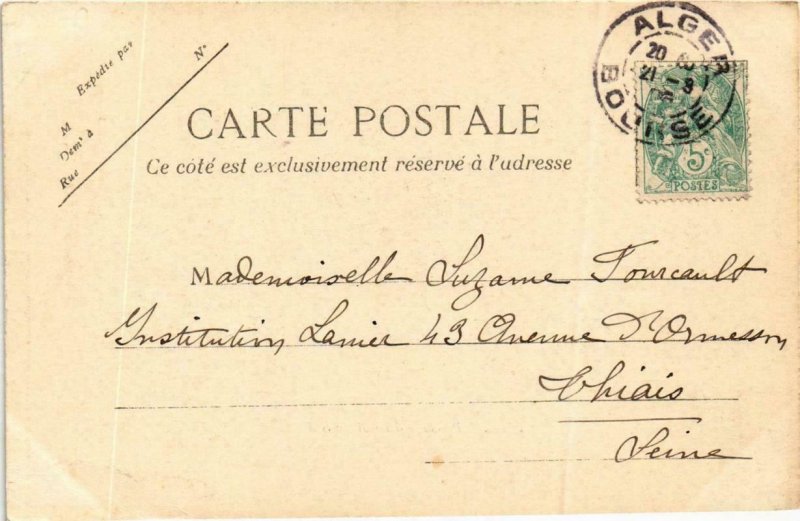 Expédié par N°
M
Demt à
Rue
ALGER
BOURSE
20
21 - 3
5c
POSTES
CARTE POSTALE
Ce côté est exclusivement réservé à l'adresse
Mademoiselle Suzanne Fourcault
Institution Lanier 43 Avenue d'Ormesson
Thiais
Seine